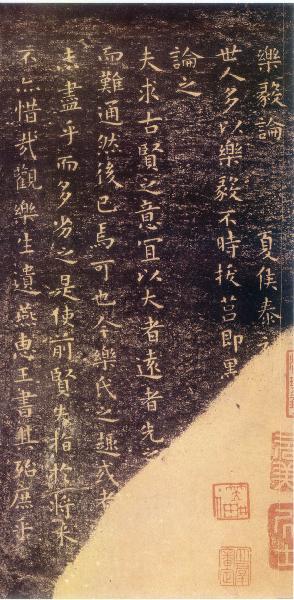 樂毅論 夏侯泰初
世人多以樂毅不時拔莒即墨
論之
夫求古賢之意宜以大者遠者先之
而難通然後已焉可也今樂氏之趣或者
未盡乎而多劣之是使前賢失指於將來
不亦惜哉觀樂生遺燕惠王書其殆庶乎